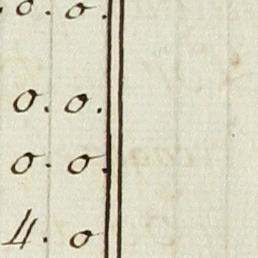 0. 0.
0. 0.
0. 0.
4. 0